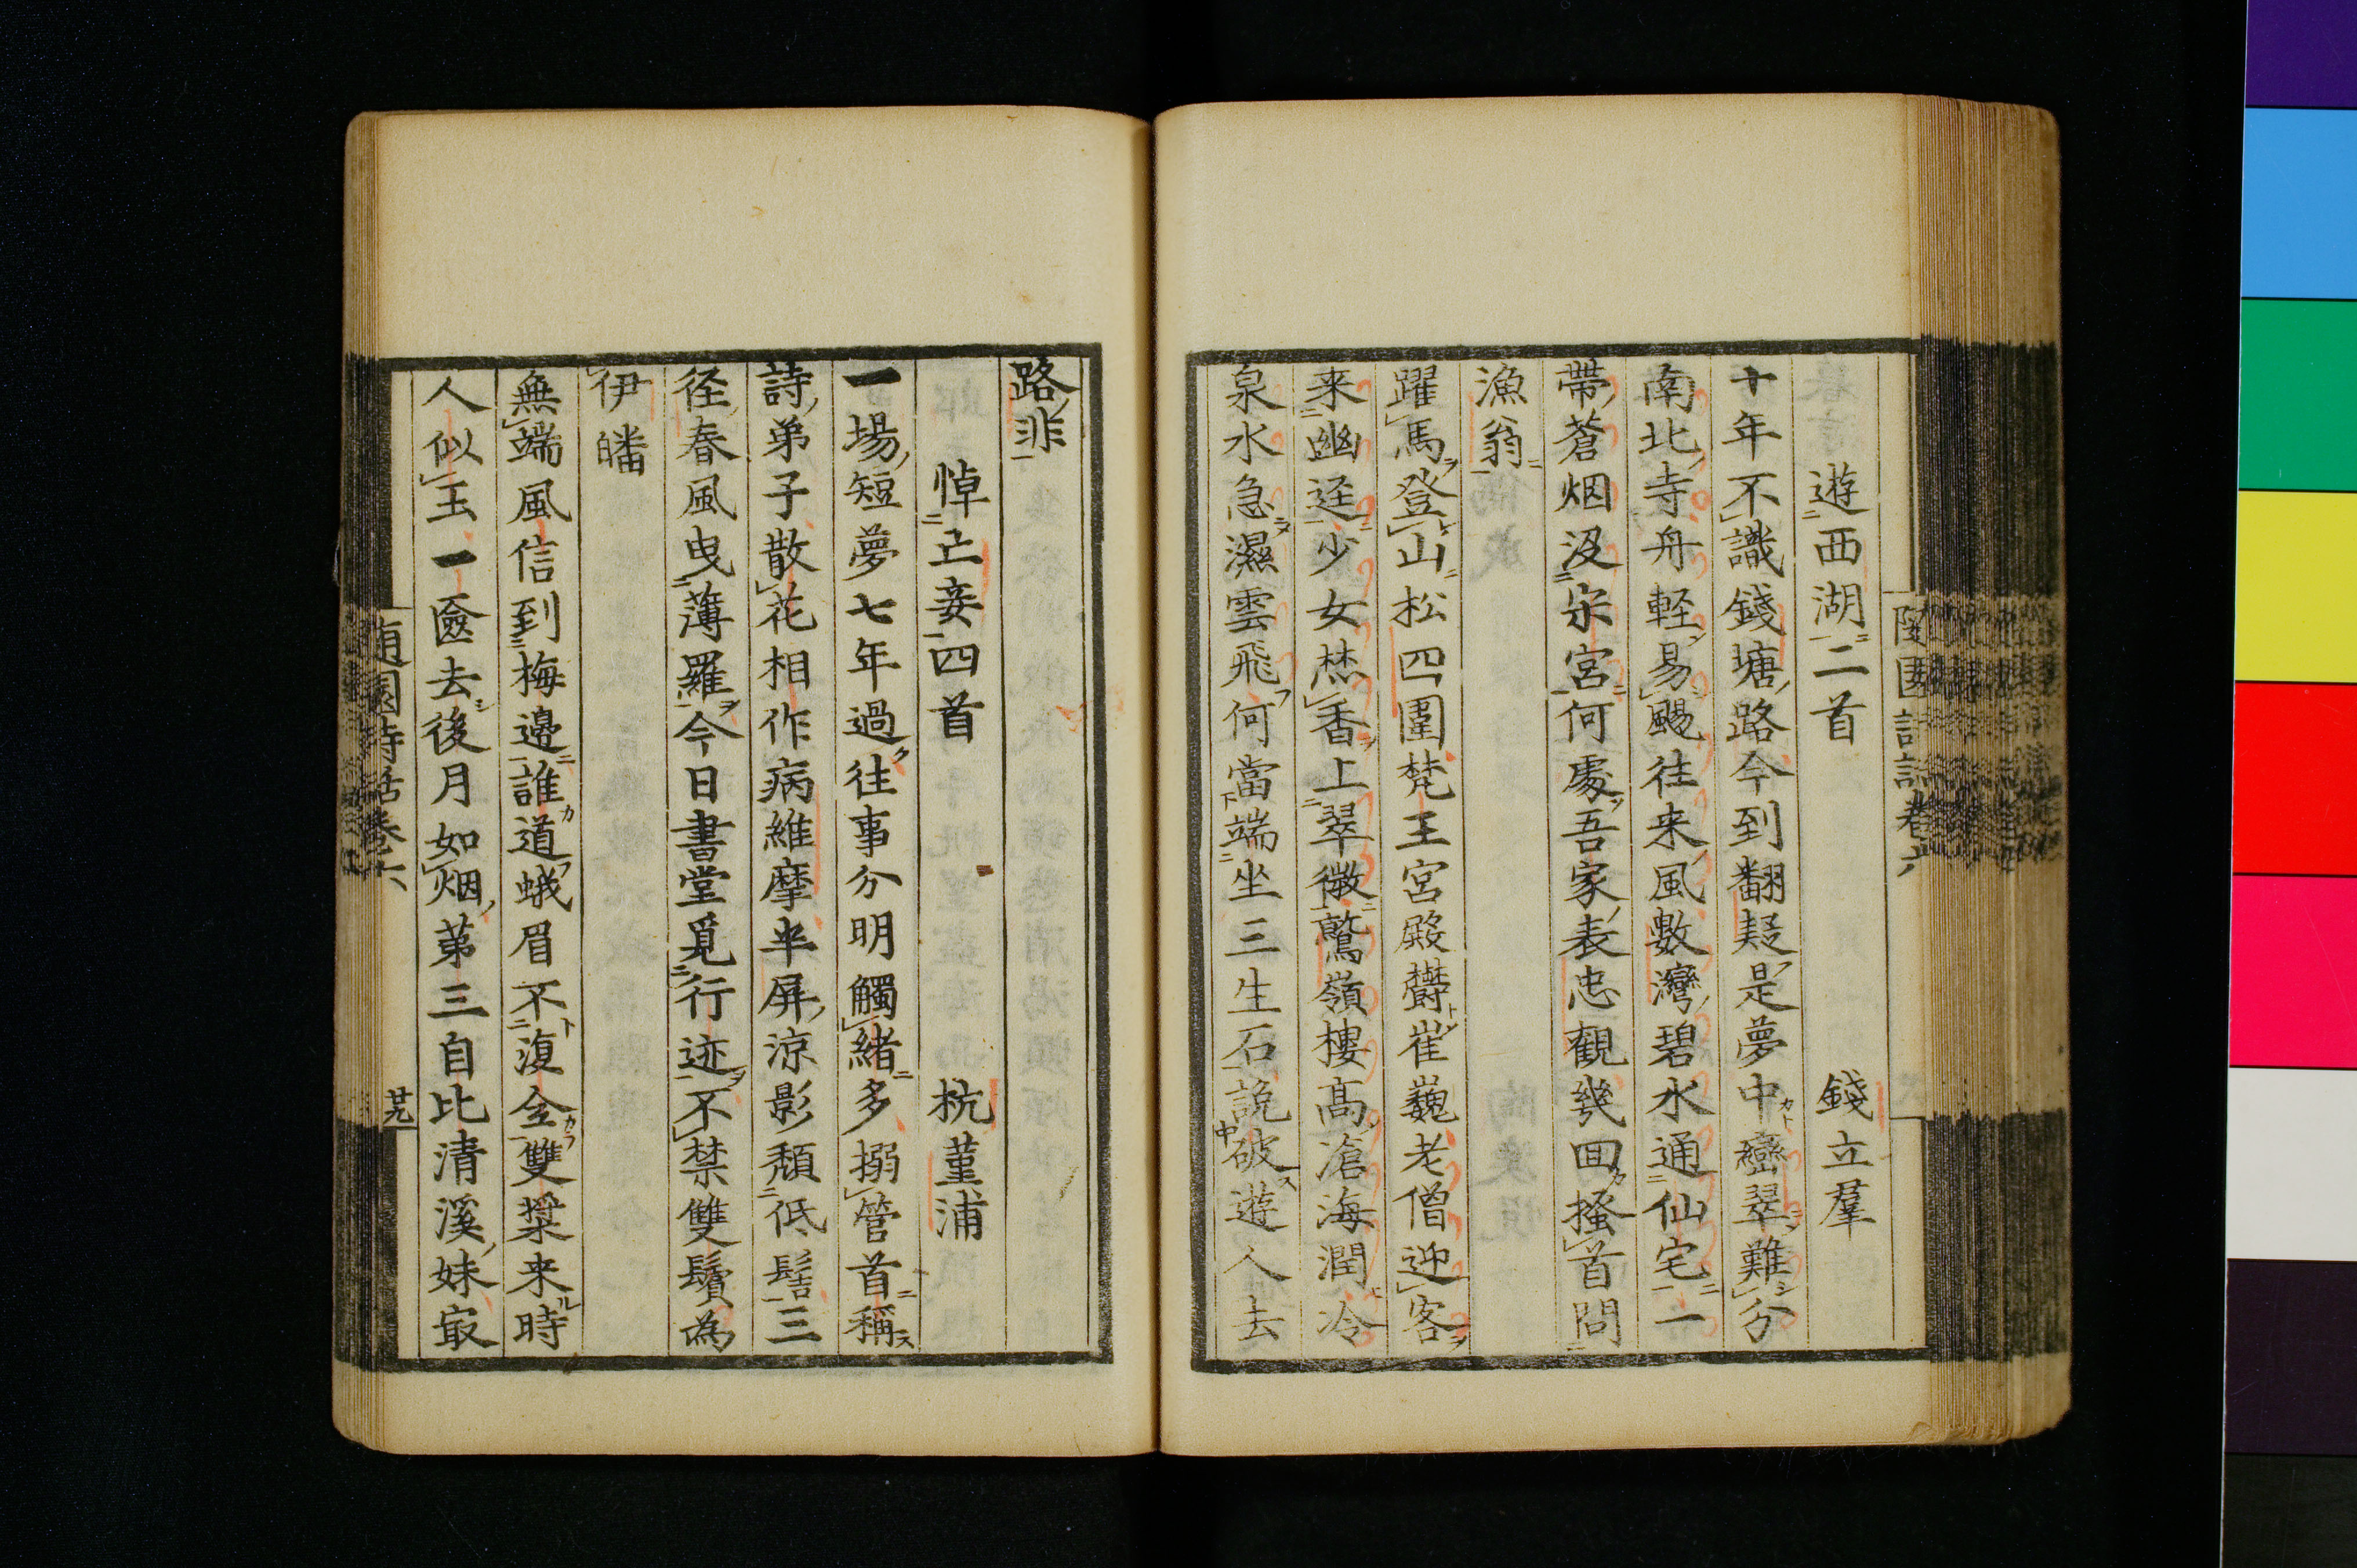 遊西湖二首 錢立羣
十年不識錢塘路今到翻疑是夢中巒翠難分
南北寺舟軽易颺往来風數灣碧水通仙宅一
帶蒼烟没宋宮何處吾家表忠観幾回搔首問
漁翁
躍馬登山松四圍梵王宮殿欝崔巍老僧迎客
来幽逕少女焚香上翠微鷲嶺樓髙滄海濶冷
泉水急濕雲飛何當端坐三生石説破遊人去
路非
悼亡妾四首 杭堇浦
一場短夢七年過往事分明觸緒多搦管首稱
詩弟子散花相作病維摩半屏涼影頽低髻三
径春風曳薄羅今日書堂覓行迹不禁雙鬢為
伊皤
無端風信到梅邊誰道蛾眉不復全雙槳来時
人似玉一奩去後月如烟苐三自比清溪妹㝡
随園詩話卷六
廿九